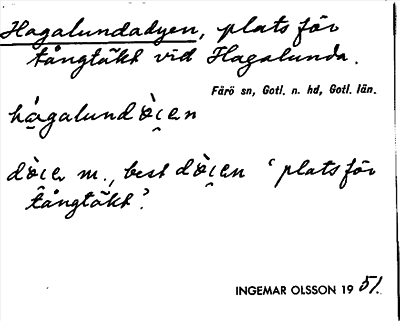 Hagalundadyen, plats för
tångtäkt vid Hagalunda.
Fårö sn, Gotl. n. hd, Gotl. län.
m., best
‘plats för
tångtäkt’.
INGEMAR OLSSON 19 51.